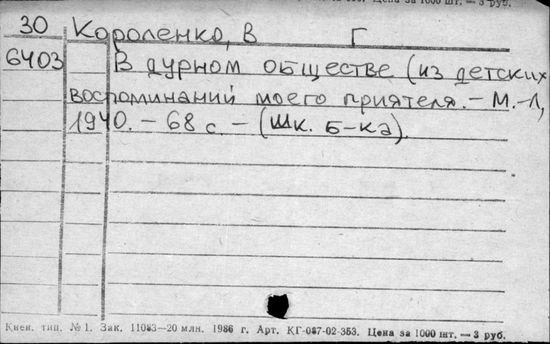 Цена за 1000 шт. — 3 руб.
30 Короленко, В Г
6403 В дурном обществе (из детских
воспоминаний моего приятеля. – М.-Л,
1940. – 68 с. – (Шк. б-ка).
Киев. тип. № 1. Зак. 11083—20 млн. 1986 г. Арт. КГ-087-02-353. Цена за 1000 шт. — 3 руб.